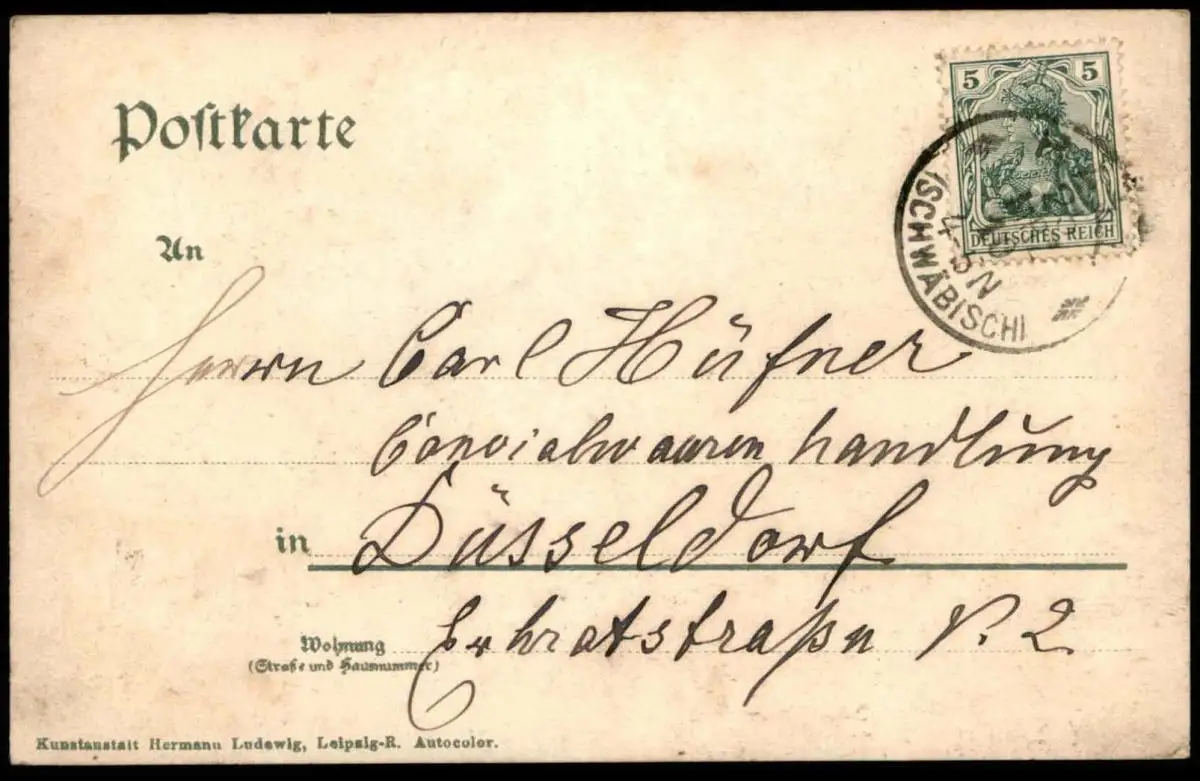 Postkarte
5 5
DEUTSCHES REICH
(SCHWÄBISCH
4-5N
An
Herrn Carl Hüfner
Colonialwaaren handlung
in Düsseldorf
Wohnung
(Straße und Hausnummer)
N. 2
Kunstanstalt Hermann Ludewig, Leipzig-R. Autocolor.